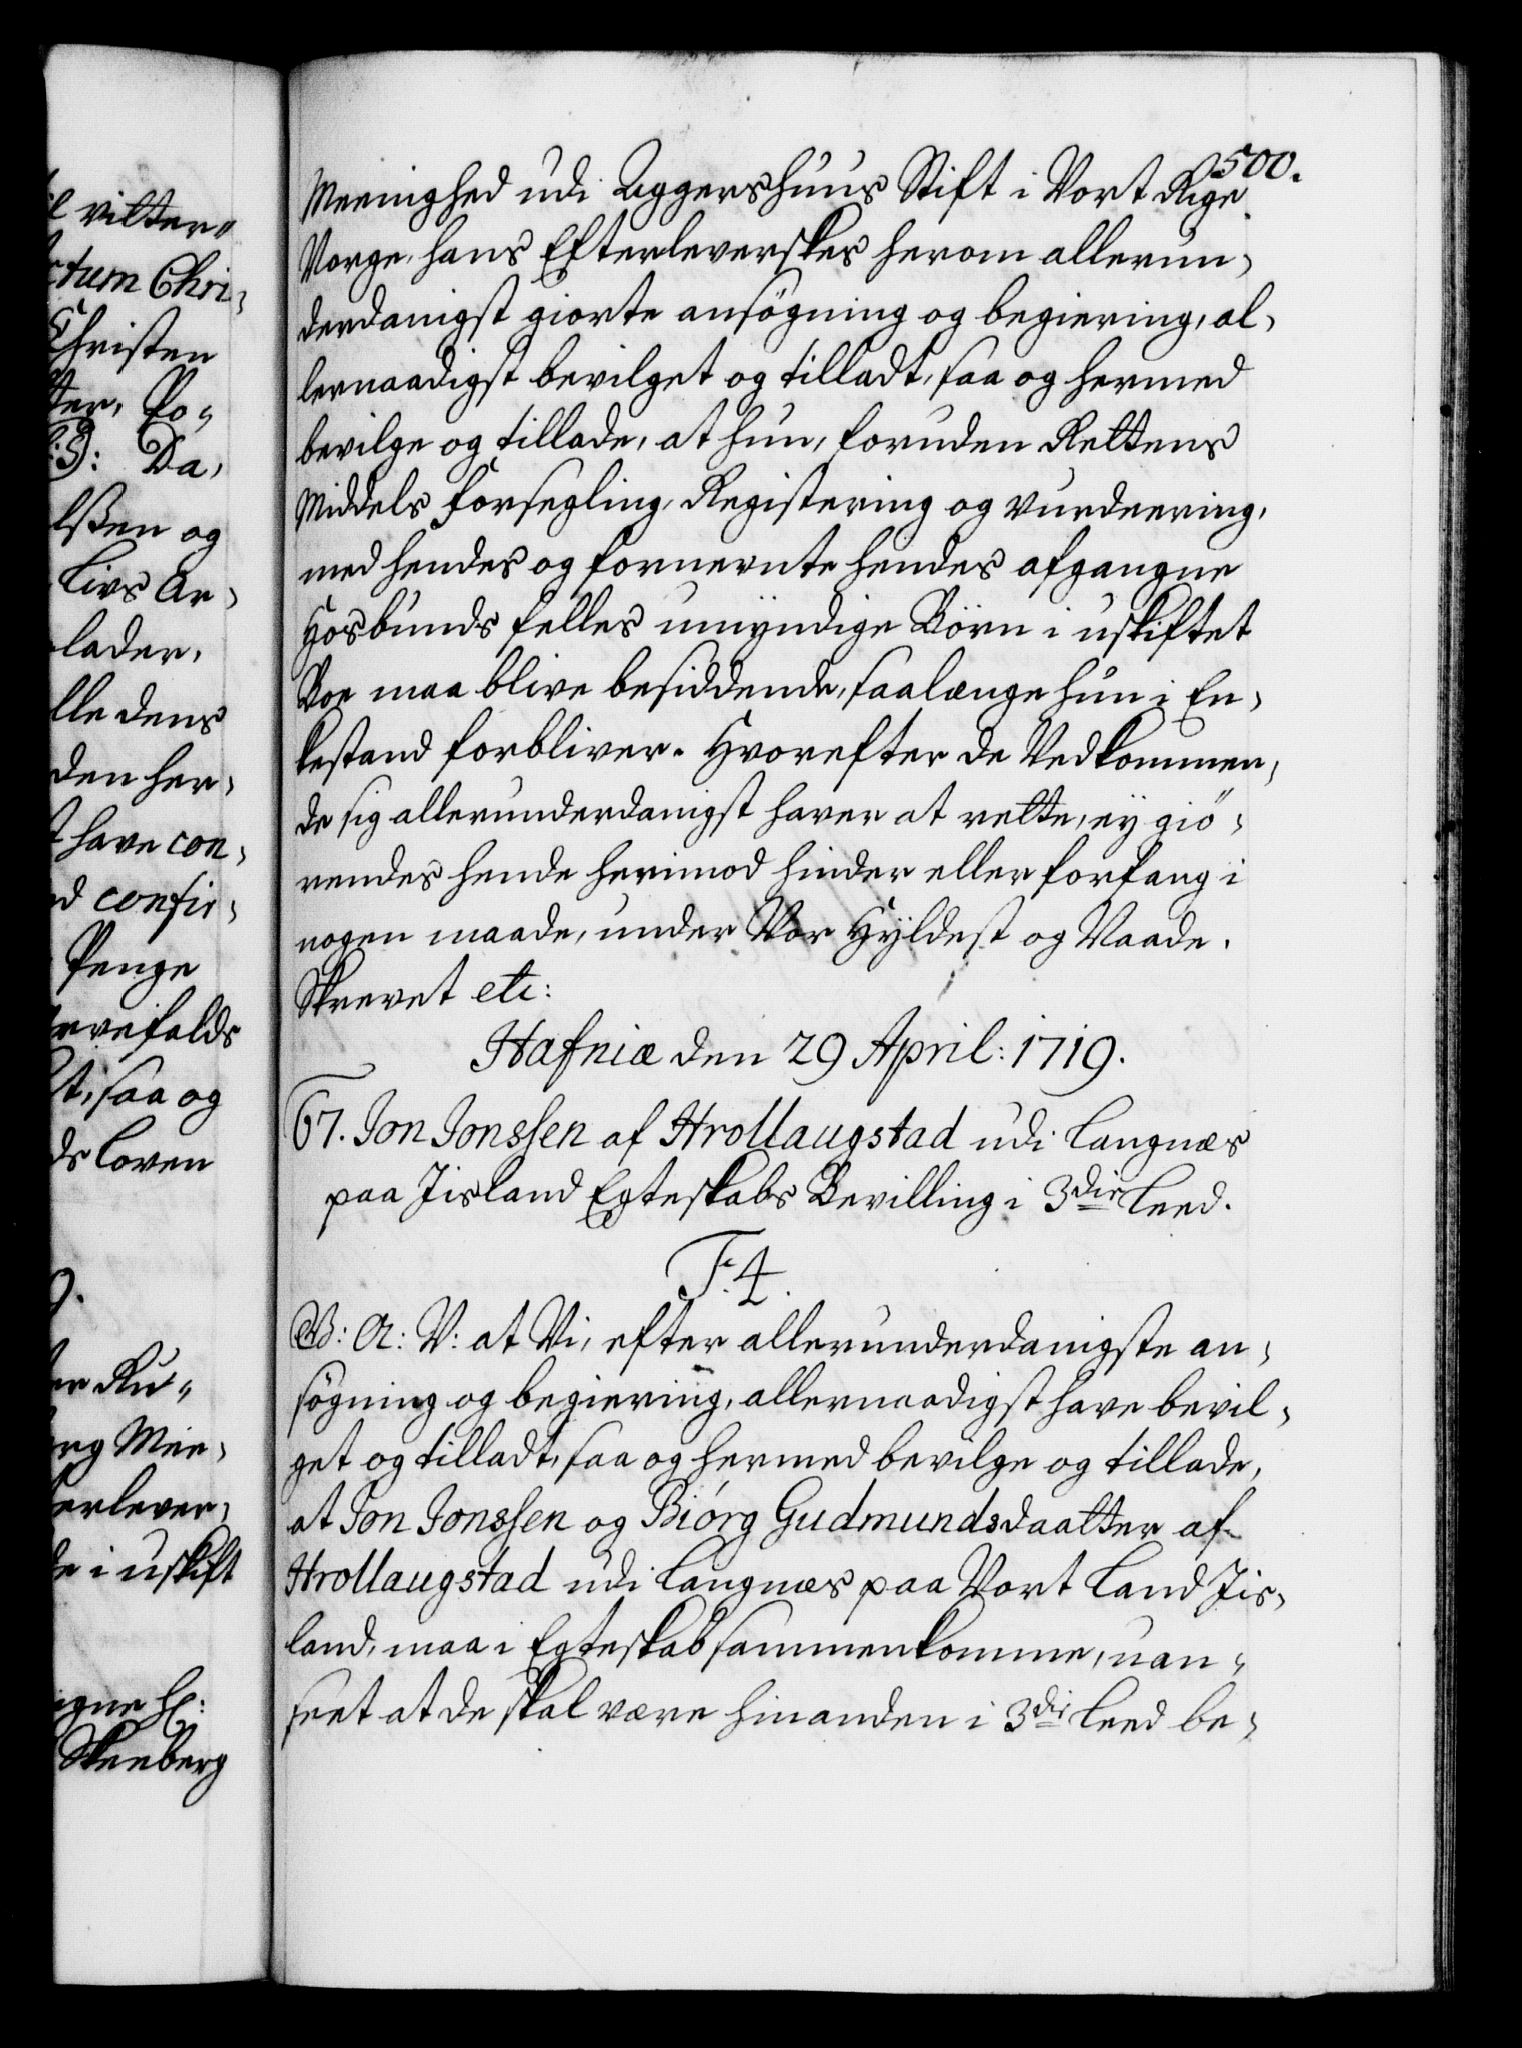 il vilter"
ctum Chri-
Christen
tter, Po-
:3: Da-
lssen og
Livs Ar-
lader,
lle dens
den her-
t have con-
ed confir-
Penge
arvefalds
t, saa og
ds Loven
9.
er Ru"
erg Mee-
erlever-
de i uskift
Skeeberg
500.
Meenighed udi Aggershuus Stift i Vort Rige
Norge, hans Efterleverskes herom allerun-
derdanigst giorte ansøgning og begiering, al-
lernaadigst bevilget og tilladt, saa og hermed
bevilge og tillade, at hun, foruden Rettens
Middels forsegling, Registering og vurdeering,
med hendes og fornevnte hendes afgangne
Hosbunds felles umÿndige Børn i uskiftet
Boe maa blive besiddende, saalænge hun i En-
kestand forbliver. Hvorefter de Vedkommen-
de sig allerunderdanigst haver at rette, eÿ giø-
rendes hende herimod hinder eller forfang i
nogen maade, under Vor Hÿldest og Naade.
Skrevet etc:
Hafniæ den 29 April: 1719.
67. Jon Jonssen af Hrollaugstad udi Langnæs
paa Jisland Egteskabs Bevilling i 3die Leed.
F. 4.
G: A: V: at Vi, efter allerunderdanigste an-
søgning og begiering, allernaadigst have bevil-
get og tilladt, saa og hermed bevilge og tillade,
at Jon Jonssen og Biórg Gudmundsdaatter af
Hrollaugstad udi Langnæs paa Vort Land Jis-
land, maa i Egteskab sammenkomme, uan-
seet at de skal være hinanden i 3die Leed be-